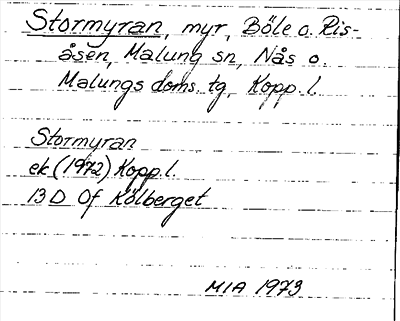 Stormyran, myr, Böle o. Ris-
åsen, Malung sn, Nås o.
Malungs doms. tg, Kopp. l.
Stormyran
ek (1972) Kopp. l.
13 D Of Kölberget
MIA 1973